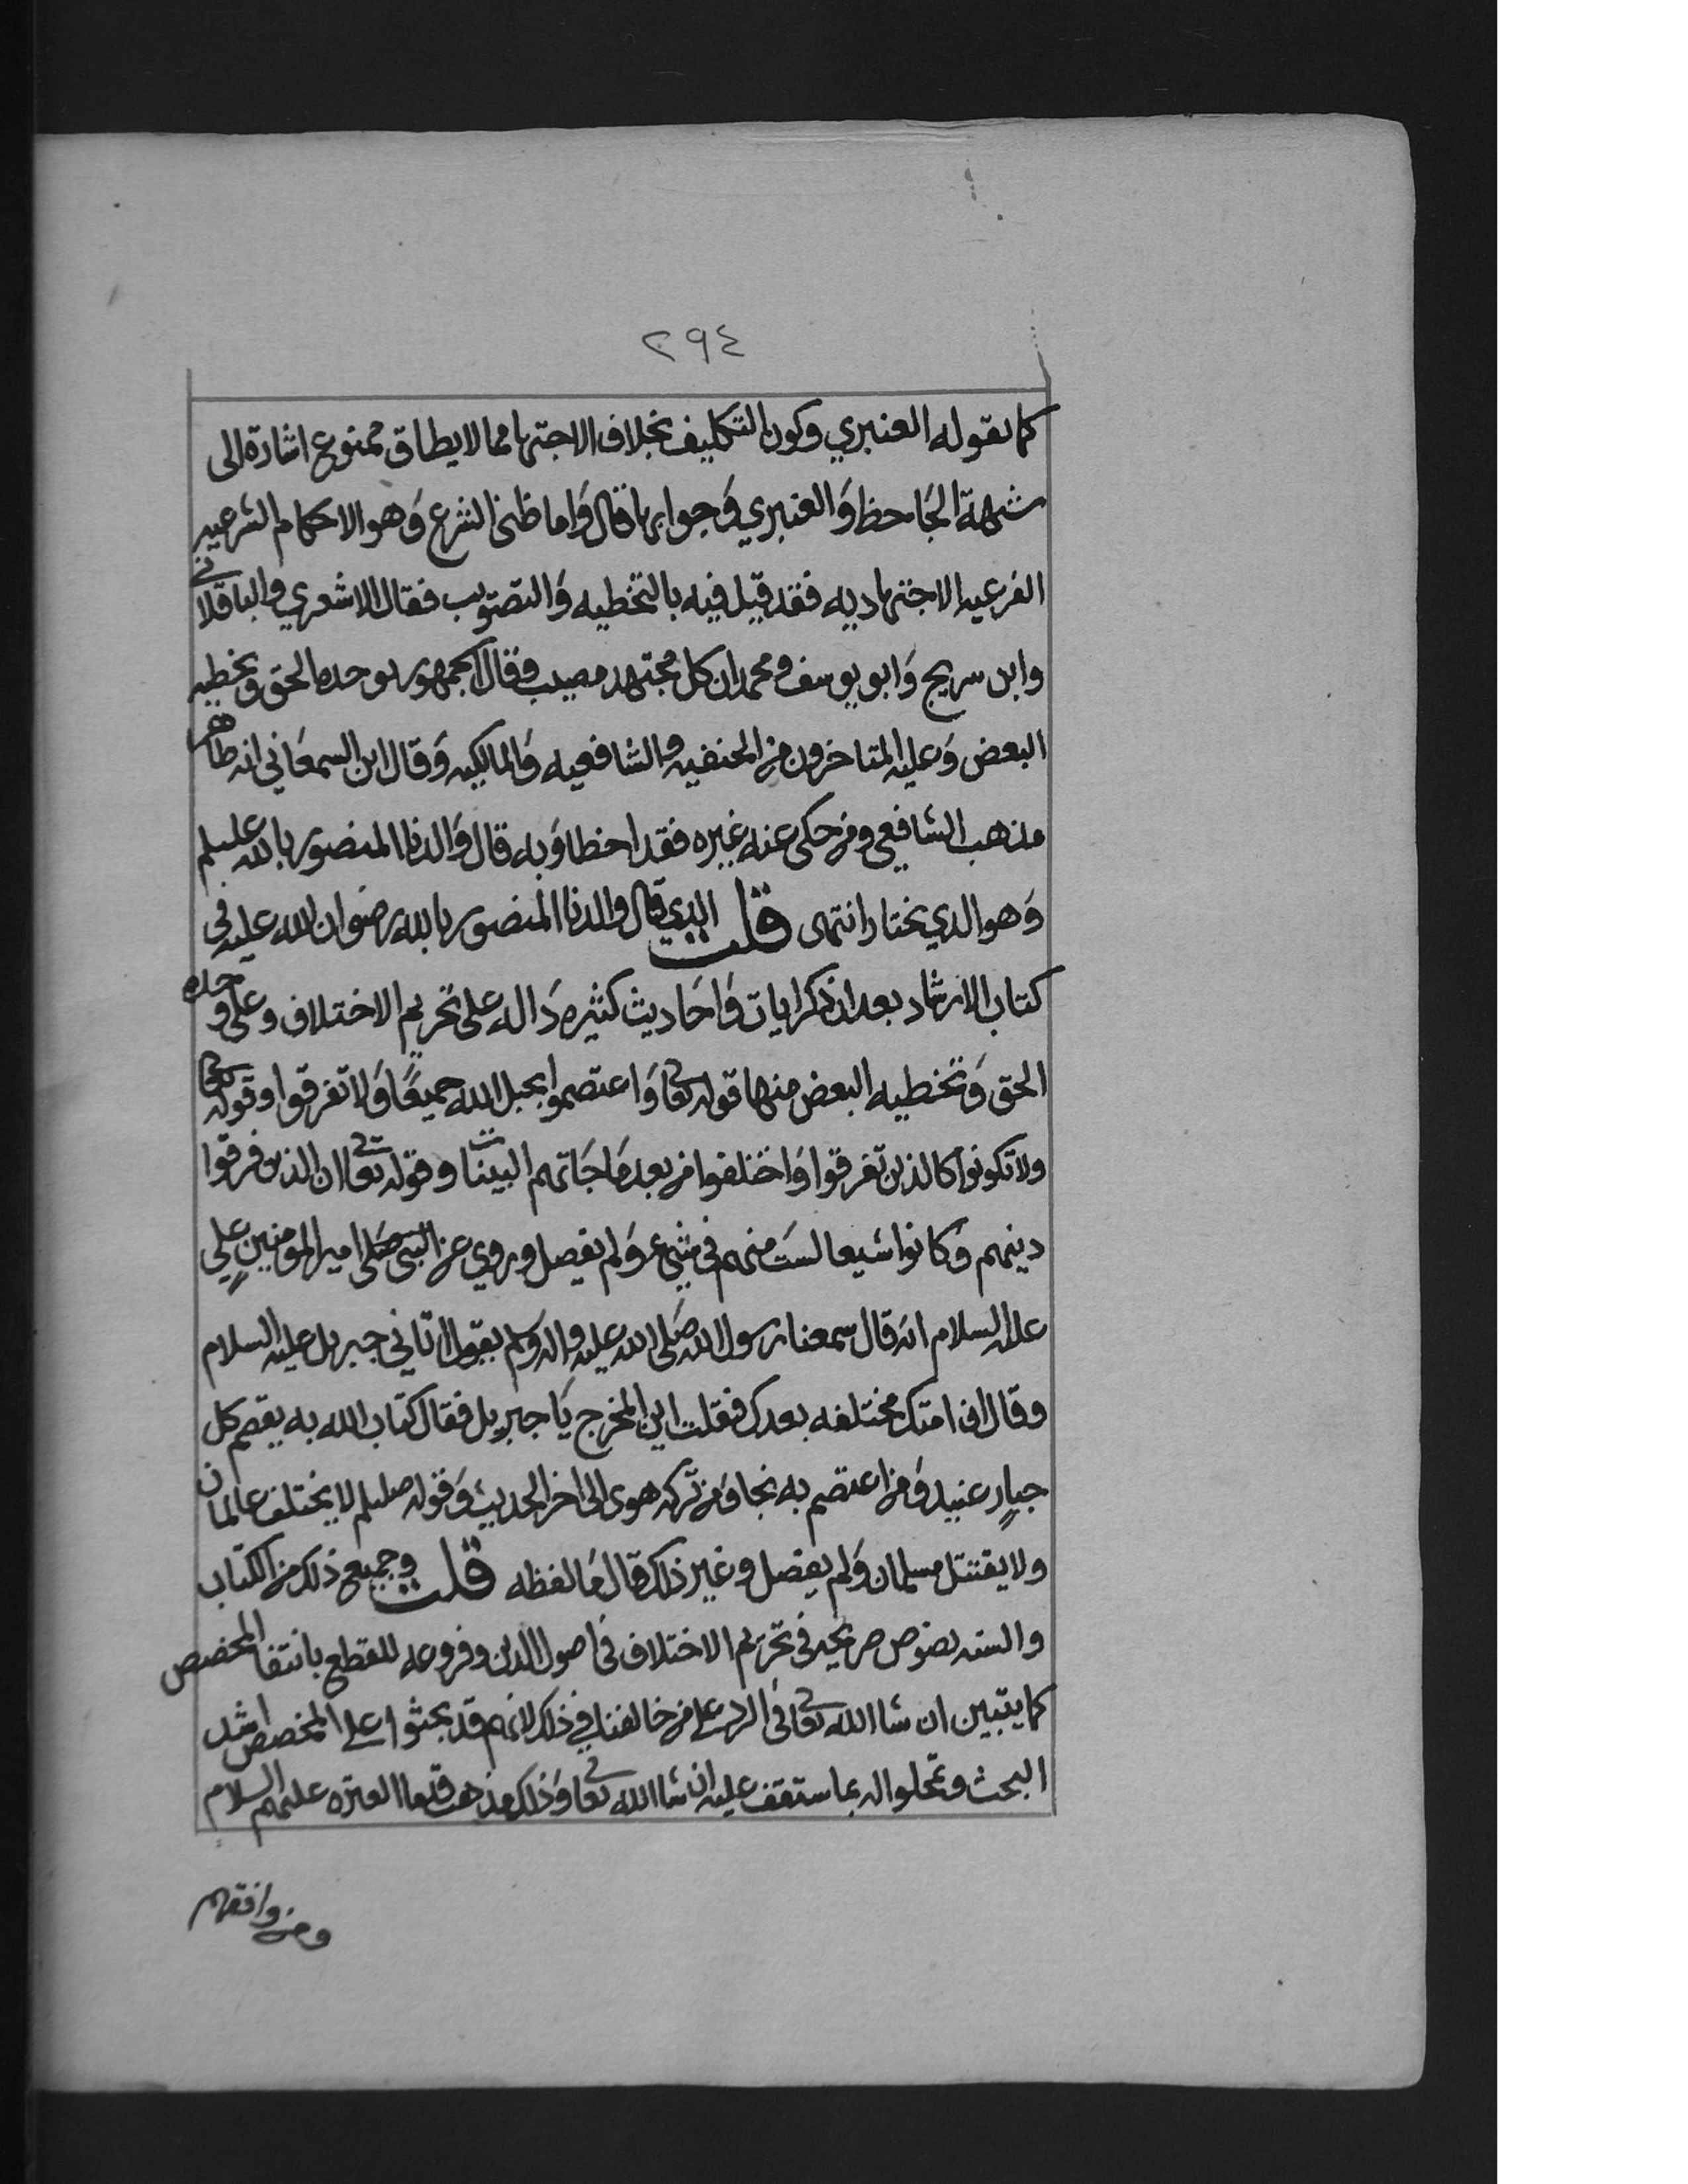 ٢٩٤
كما يقوله العنبري وكون التكليف بخلاف الاجتهاد مما لا يطاق ممنوع اشارة الى
شبهة الجاحظ وَالعنبري وَجوابها قال وَاما ظني الشرع وَهو الاحكام الشرعيه
الفرعيه الاجتهاديه فقد قيل فيه بالتخطيه وَالتصويب فقال الاشعري والباقلاني
وابن سريج وَابو يوسف ومحمد ان كل مجتهد مصيب وقال الجمهور بوحدة الحق وتخطيه
البعض وَعليه المتاخرون من الحنفيه والشافعيه وَالمالكيه وَقال ابن السمعَاني انه ظاهر
مذهب الشافعي ومن حكى عنه غيره فقد اخطا وَبه قال وَالدنا المنصور بالله عليلم
وَهو الذي نختار انتهى قلت الذي قال والدنا المنصور بالله رضوان الله عليه في
كتاب الارشاد بعد ان ذكر ايات وَاحَاديث كثيره دَاله على تحريم الاختلاف وعلى وحده
الحق وَتخطيه البعض منها قوله تعا وَاعتصموا بحبل الله جميعًا وَلا تفرقوا وقوله تعا
ولا تكونوا كالذين تفرقوا وَاختلفوا من بعد مَا جَاتهم البينات وقوله تعا ان الذين فرقوا
دينهم وَكانوا شيعا لستَ منهم في شيء وَلم يفصل وروي عن النبي صلى امير المومنين علي
عليه السلام انه قال سمعنا رسول الله صَلى الله عليه واله وَلم يقول اتاني جبريل عليه السلام
وقال ان امتك مختلفه بعدك فقلت اين المخرج يَا جبريل فقال كتاب الله به يقصم كل
جبارٍ عنيد وَمن اعتصم به نجا وَمن تركه هوى الى اخر الحديث وَقوله صللم لا يختلف عالمان
ولا يقتتل مسلمان وَلم يفصل وغير ذلك قال مَا لفظه قلت وجميع ذلك من الكتاب
والسنه نصوص صريحه في تحريم الاختلاف في اصول الدين وفروعه للقطع بانتفا المخصص
كما يتبين ان شا الله تعا في الرد على من خالفنا في ذلك لانهم قد بحثوا على المخصص اشد
البحث وتمحلوا له بما ستقف عليه ان شا الله تعا وَذلك مذهب قدما العتره عليهم السلام
ومن وافقهم